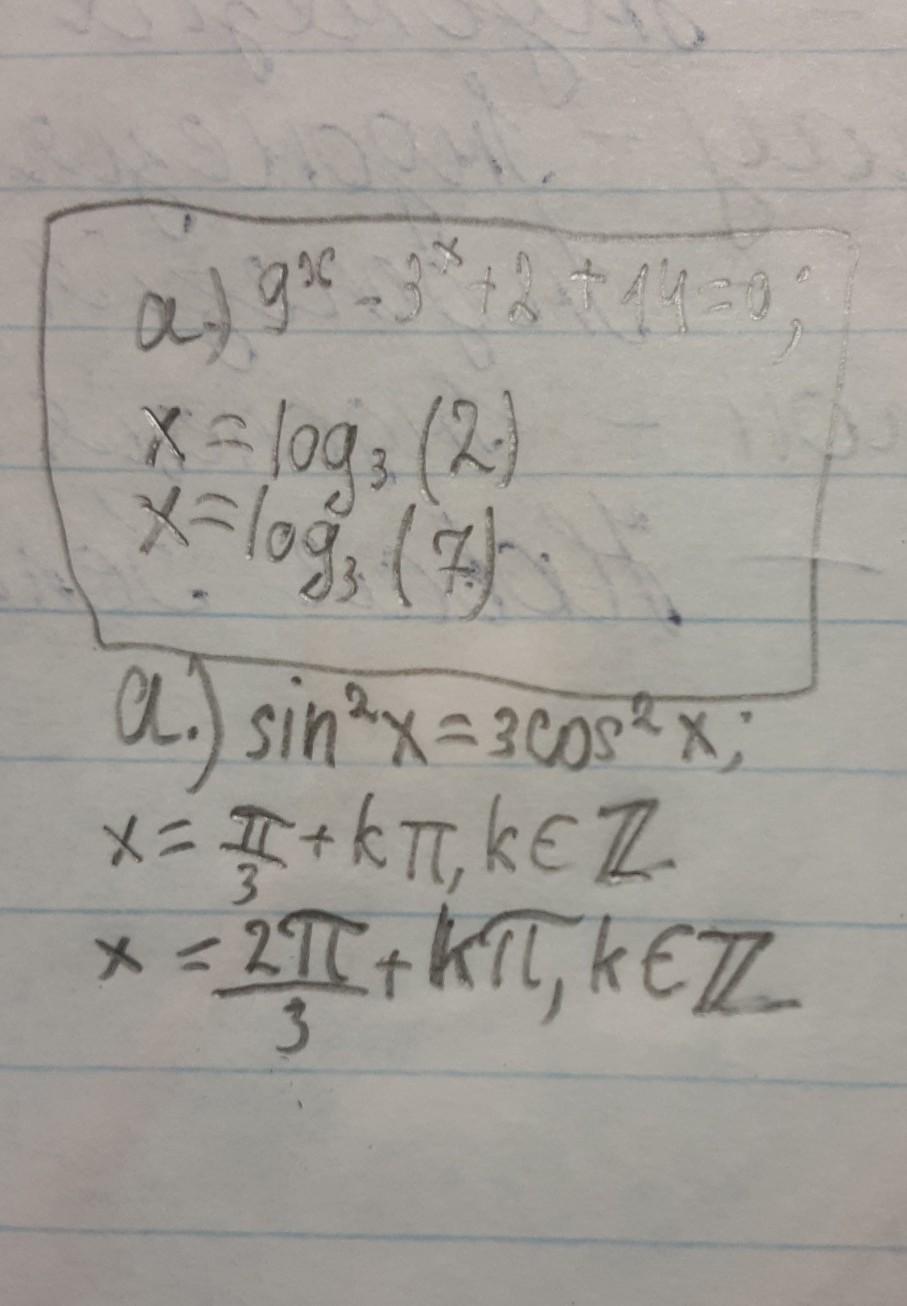 a.) 9ˣ - 3ˣ + 2 + 14 = 0;
x = log₃ (2)
x = log₃ (7)
a.) sin²x = 3cos²x;
x = π/3 + kπ, k ∈ ℤ
x = 2π/3 + kπ, k ∈ ℤ